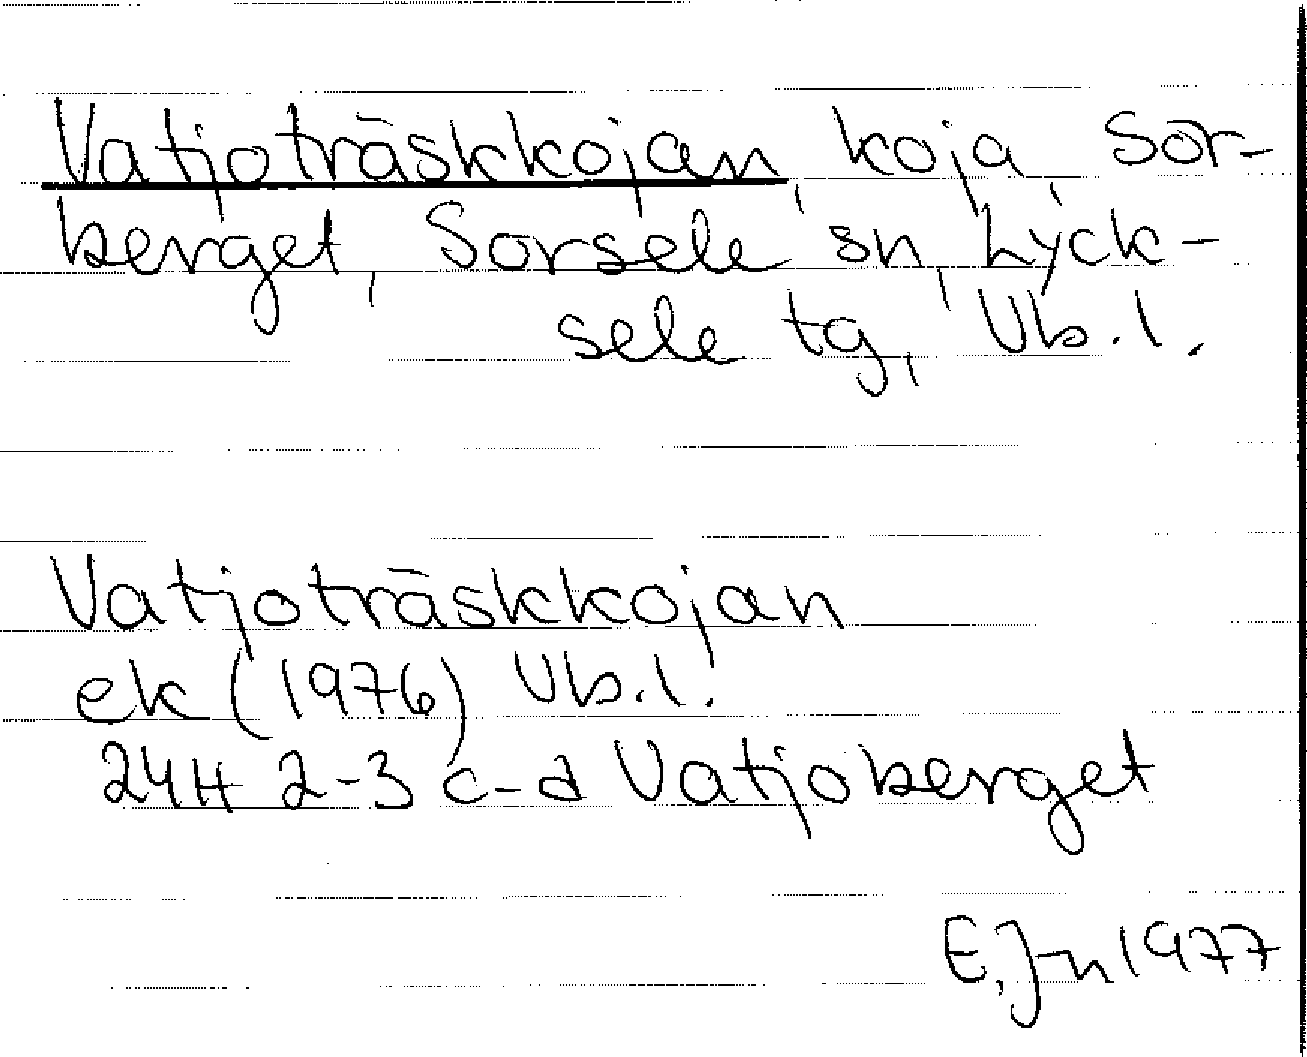 Vatjoträskkojan, koja, Sör-
berget, Sorsele sn, Lyck-
sele tg, Vb. l.
Vatjoträskkojan
ek (1976) Vb. l.
24H 2-3 c-d Vatjoberget
E. Jn 1977